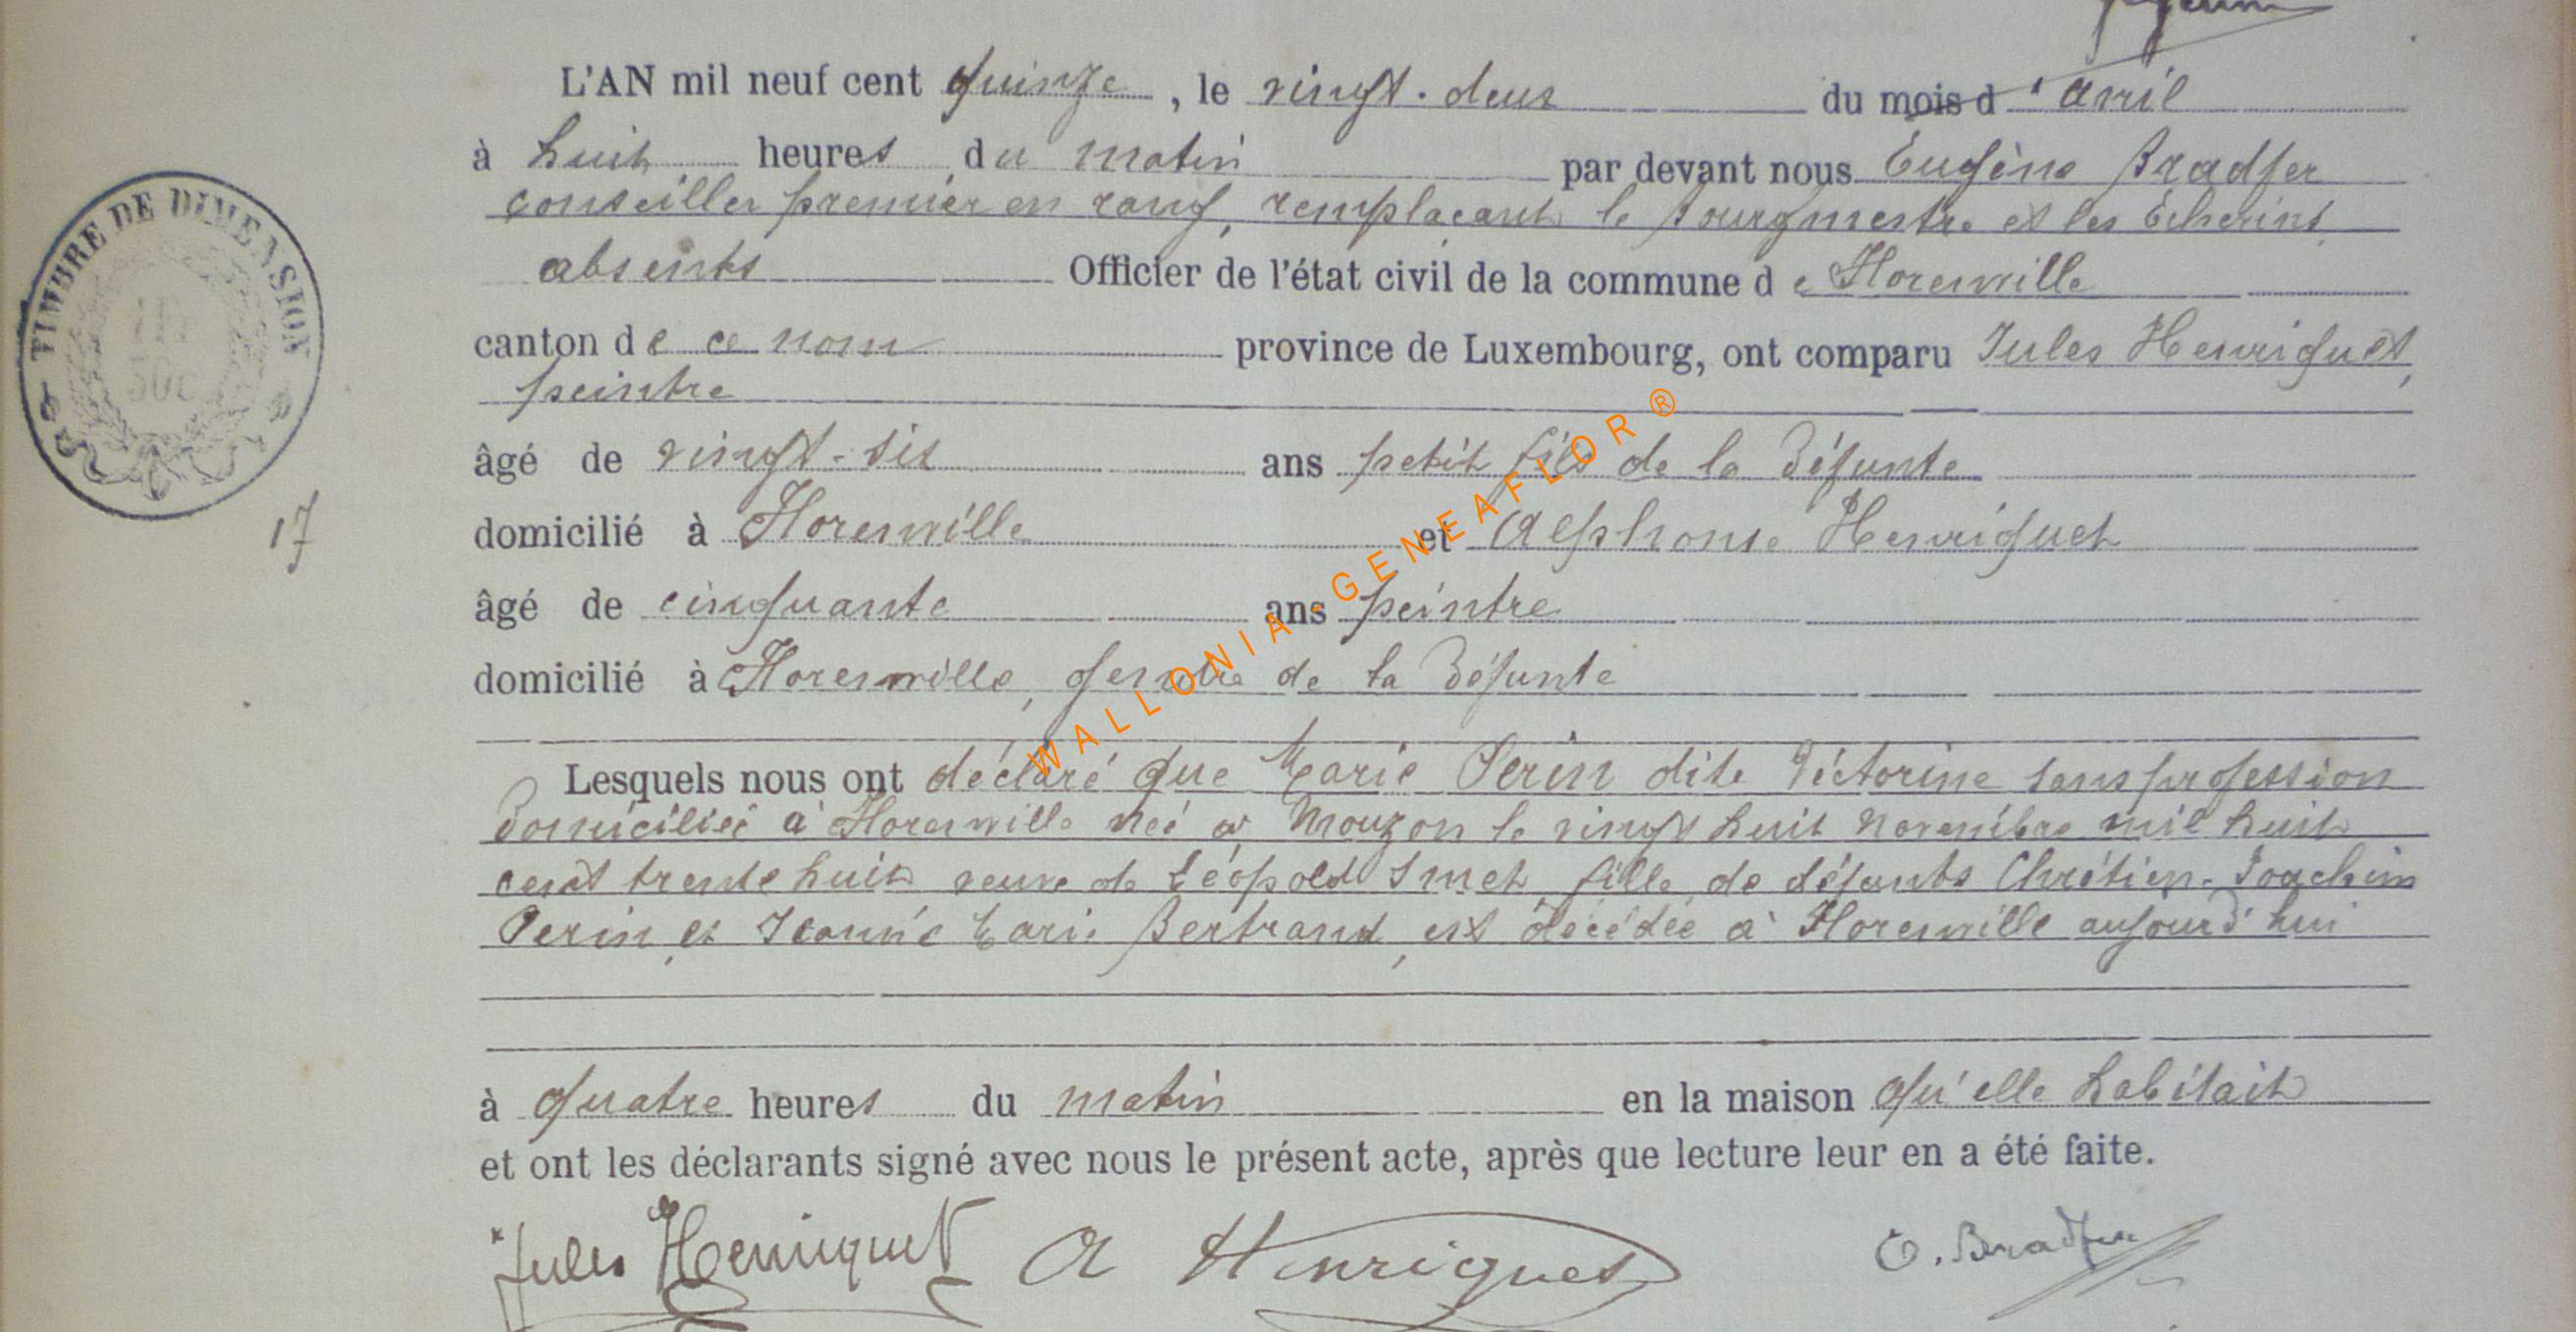 L'AN mil neuf cent quinze, le vingt-deux du mois d'avril
à huit heures du matin par devant nous Eugène Bradfer
conseiller premier en rang, remplaçant le Bourgmestre et les Echevins
absents Officier de l'état civil de la commune de Florenville
canton de ce nom province de Luxembourg, ont comparu Jules Henriquet,
peintre
âgé de vingt-six ans petit fils de la Défunte
domicilié à Florenville et Alphonse Henriquet
âgé de cinquante ans peintre
domicilié à Florenville, gendre de la Défunte
Lesquels nous ont déclaré que Marie Perin dite Victorine sans profession
Domiciliée à Florenville née à Mouzon le vingt huit novembre mil huit
cent trente huit veuve de Léopold Smet fille de défunts Chrétien-Joachim
Perin et Jeanne Marie Bertrand, est décédée à Florenville aujourd'hui
à quatre heures du matin en la maison qu'elle habitait
et ont les déclarants signé avec nous le présent acte, après que lecture leur en a été faite.
Jules Henriquet A Henriquet E. Bradfer
TIMBRE DE DIMENSION
17
WALLONIA - GENEAFLOR ®